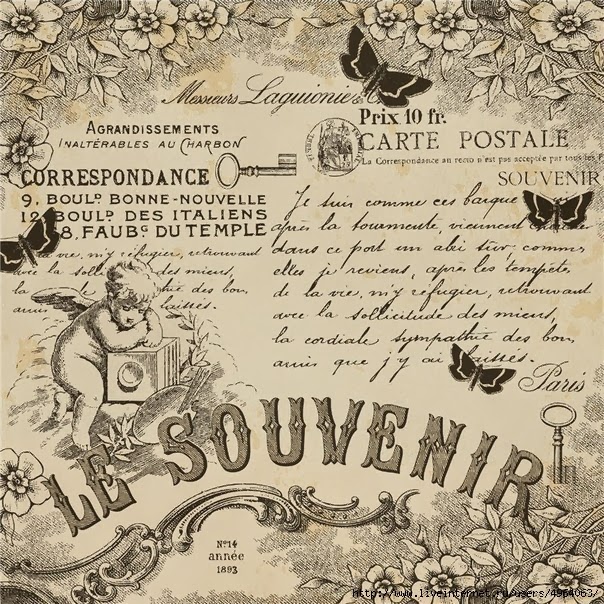 Messieurs Laguionie & C
Prix 10 fr.
AGRANDISSEMENTS
INALTÉRABLES AU CHARBON
CARTE POSTALE
La Correspondance au recto n'est pas acceptée par tous les
CORRESPONDANCE
SOUVENIR
9, BOULD. BONNE-NOUVELLE
12 BOULD. DES ITALIENS
8, FAUBG. DU TEMPLE
Je suis comme ces barque
après la tourmente, viennent
dans ce port un abri sûr, comme
elles je reviens, après les tempêtes
de la vie, m'y réfugier, retrouvant
avec la sollicitude des miens,
la cordiale sympathie des bon
amis que j'y ai laissés.
la vie, m'y réfugier, retrouvant
avec la soll des miens,
la des bon
amis laissés.
Paris
LE SOUVENIR
No 14
année
1893
http://www.liveinternet.ru/users/4964063/